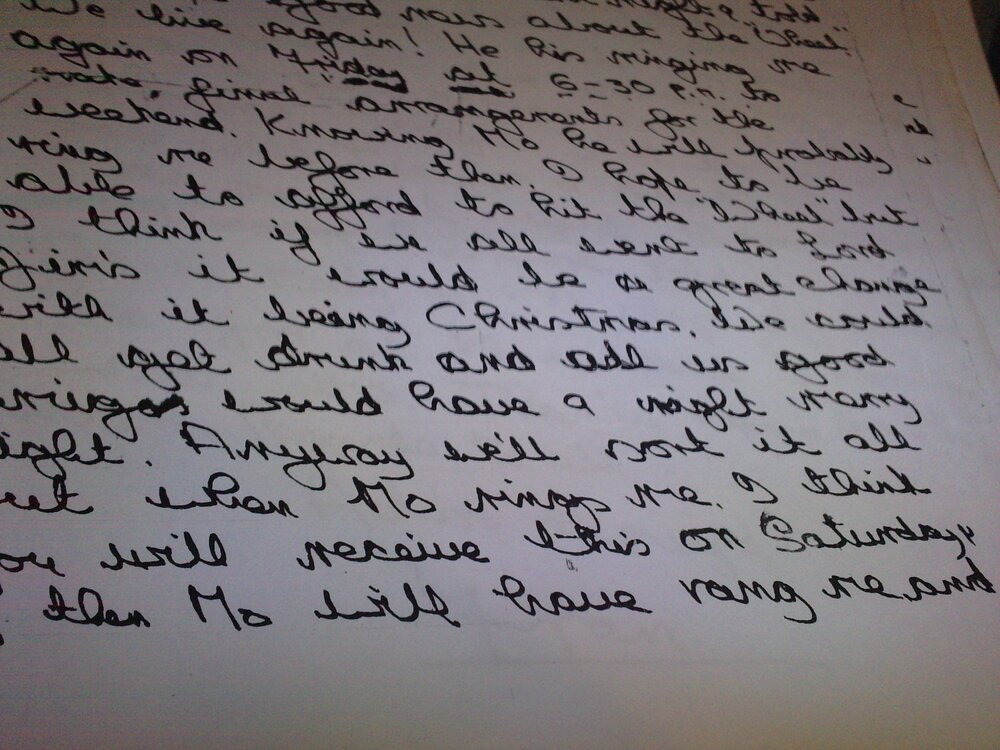 good news about the "Wheel"
We live again! He his ringing me
again on Friday at 6-30 p.m. to
make final arrangements for the
weekend. Knowing Mo he will probably
ring me before then. I hope to be
able to afford to hit the "Wheel" but
I think if we all went to Lord
Jim's it would be a great change
with it being Christmas. We could
all get drunk and all in good
would have a right merry
ight. Anyway we'll sort it all
ut when Mo rings me. I think
ou will receive this on Saturday,
then Mo will have rang me and